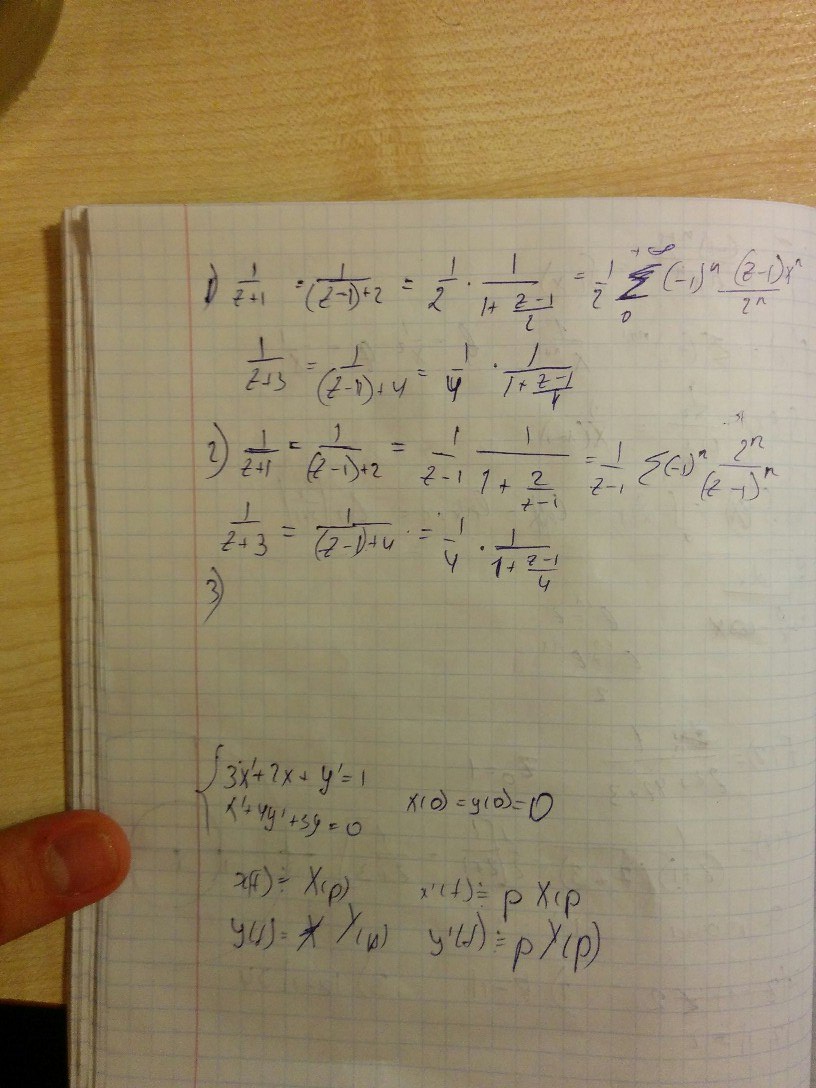 1) 1/(z+1) = 1/((z-1)+2) = 1/2 · 1/(1+(z-1)/2) = 1/2 Σ_0^{+∞} (-1)^n (z-1)x^n/2^n
1/(z+3) = 1/((z-1)+4) = 1/4 · 1/(1+(z-1)/4)
2) 1/(z+1) = 1/((z-1)+2) = 1/(z-1) 1/(1+2/(z-1)) = 1/(z-1) Σ(-1)^n 2^n/(z-1)^n
1/(z+3) = 1/((z-1)+4) = 1/4 · 1/(1+(z-1)/4)
3)
{ 3x'+2x+y'=1
x'+4y'+3y=0 x(0)=y(0)=0
x(t)≑X(p) x'(t)≑pX(p
y(t)= Y(p) y'(t)≑pY(p)